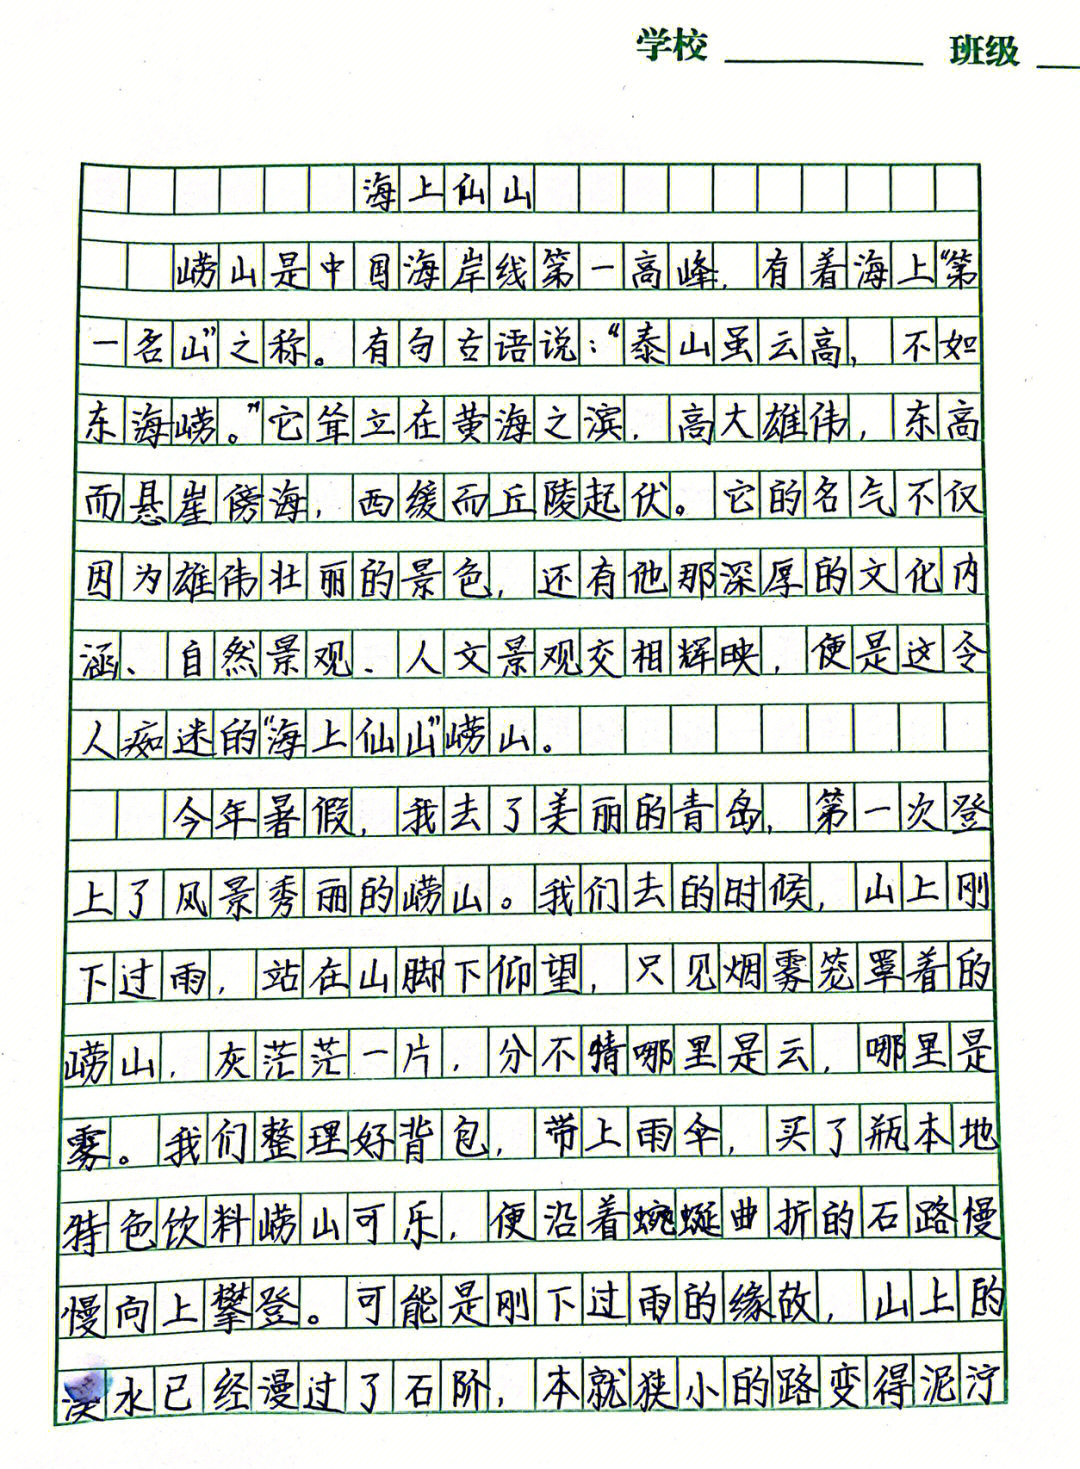 学校 班级
海上仙山
崂山是中国海岸线第一高峰，有着海上“第
一名山”之称。有句古语说：“泰山虽云高，不如
东海崂。”它耸立在黄海之滨，高大雄伟，东高
而悬崖傍海，西缓而丘陵起伏。它的名气不仅
因为雄伟壮丽的景色，还有他那深厚的文化内
涵、自然景观、人文景观交相辉映，便是这令
人痴迷的“海上仙山”崂山。
今年暑假，我去了美丽的青岛，第一次登
上了风景秀丽的崂山。我们去的时候，山上刚
下过雨，站在山脚下仰望，只见烟雾笼罩着的
崂山，灰茫茫一片，分不清哪里是云，哪里是
雾。我们整理好背包，带上雨伞，买了瓶本地
特色饮料崂山可乐，便沿着蜿蜒曲折的石路慢
慢向上攀登。可能是刚下过雨的缘故，山上的
水已经漫过了石阶，本就狭小的路变得泥泞